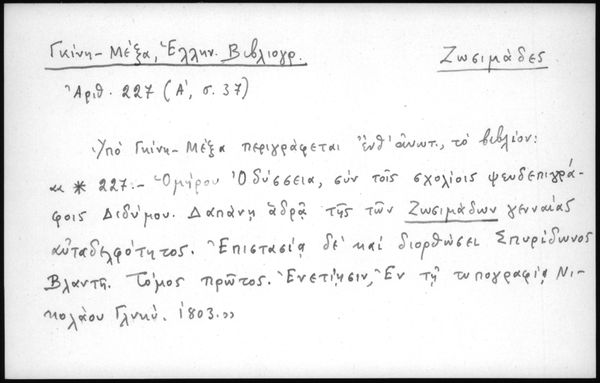 Γκίνη-Μέξα, Ἑλλην. Βιβλιογρ.
Ζωσιμάδες
Ἀριθ. 227 (Α', σ. 37)
Ὑπό Γκίνη-Μέξα περιγράφεται ἔνθ' ἀνωτ., τό βιβλίον:
« * 227:- Ὁμήρου Ὀδύσσεια, σύν τοῖς σχολίοις ψευδεπιγρά-
φοις Διδύμου. Δαπάνῃ ἁδρᾷ τῆς τῶν Ζωσιμάδων γενναίας
αὐταδελφότητος. Ἐπιστασίᾳ δέ καί διορθώσει Σπυρίδωνος
Βλαντῆ. Τόμος πρῶτος. Ἐνετίῃσιν, Ἐν τῇ τυπογραφίᾳ Νι-
κολάου Γλυκύ. 1803.»